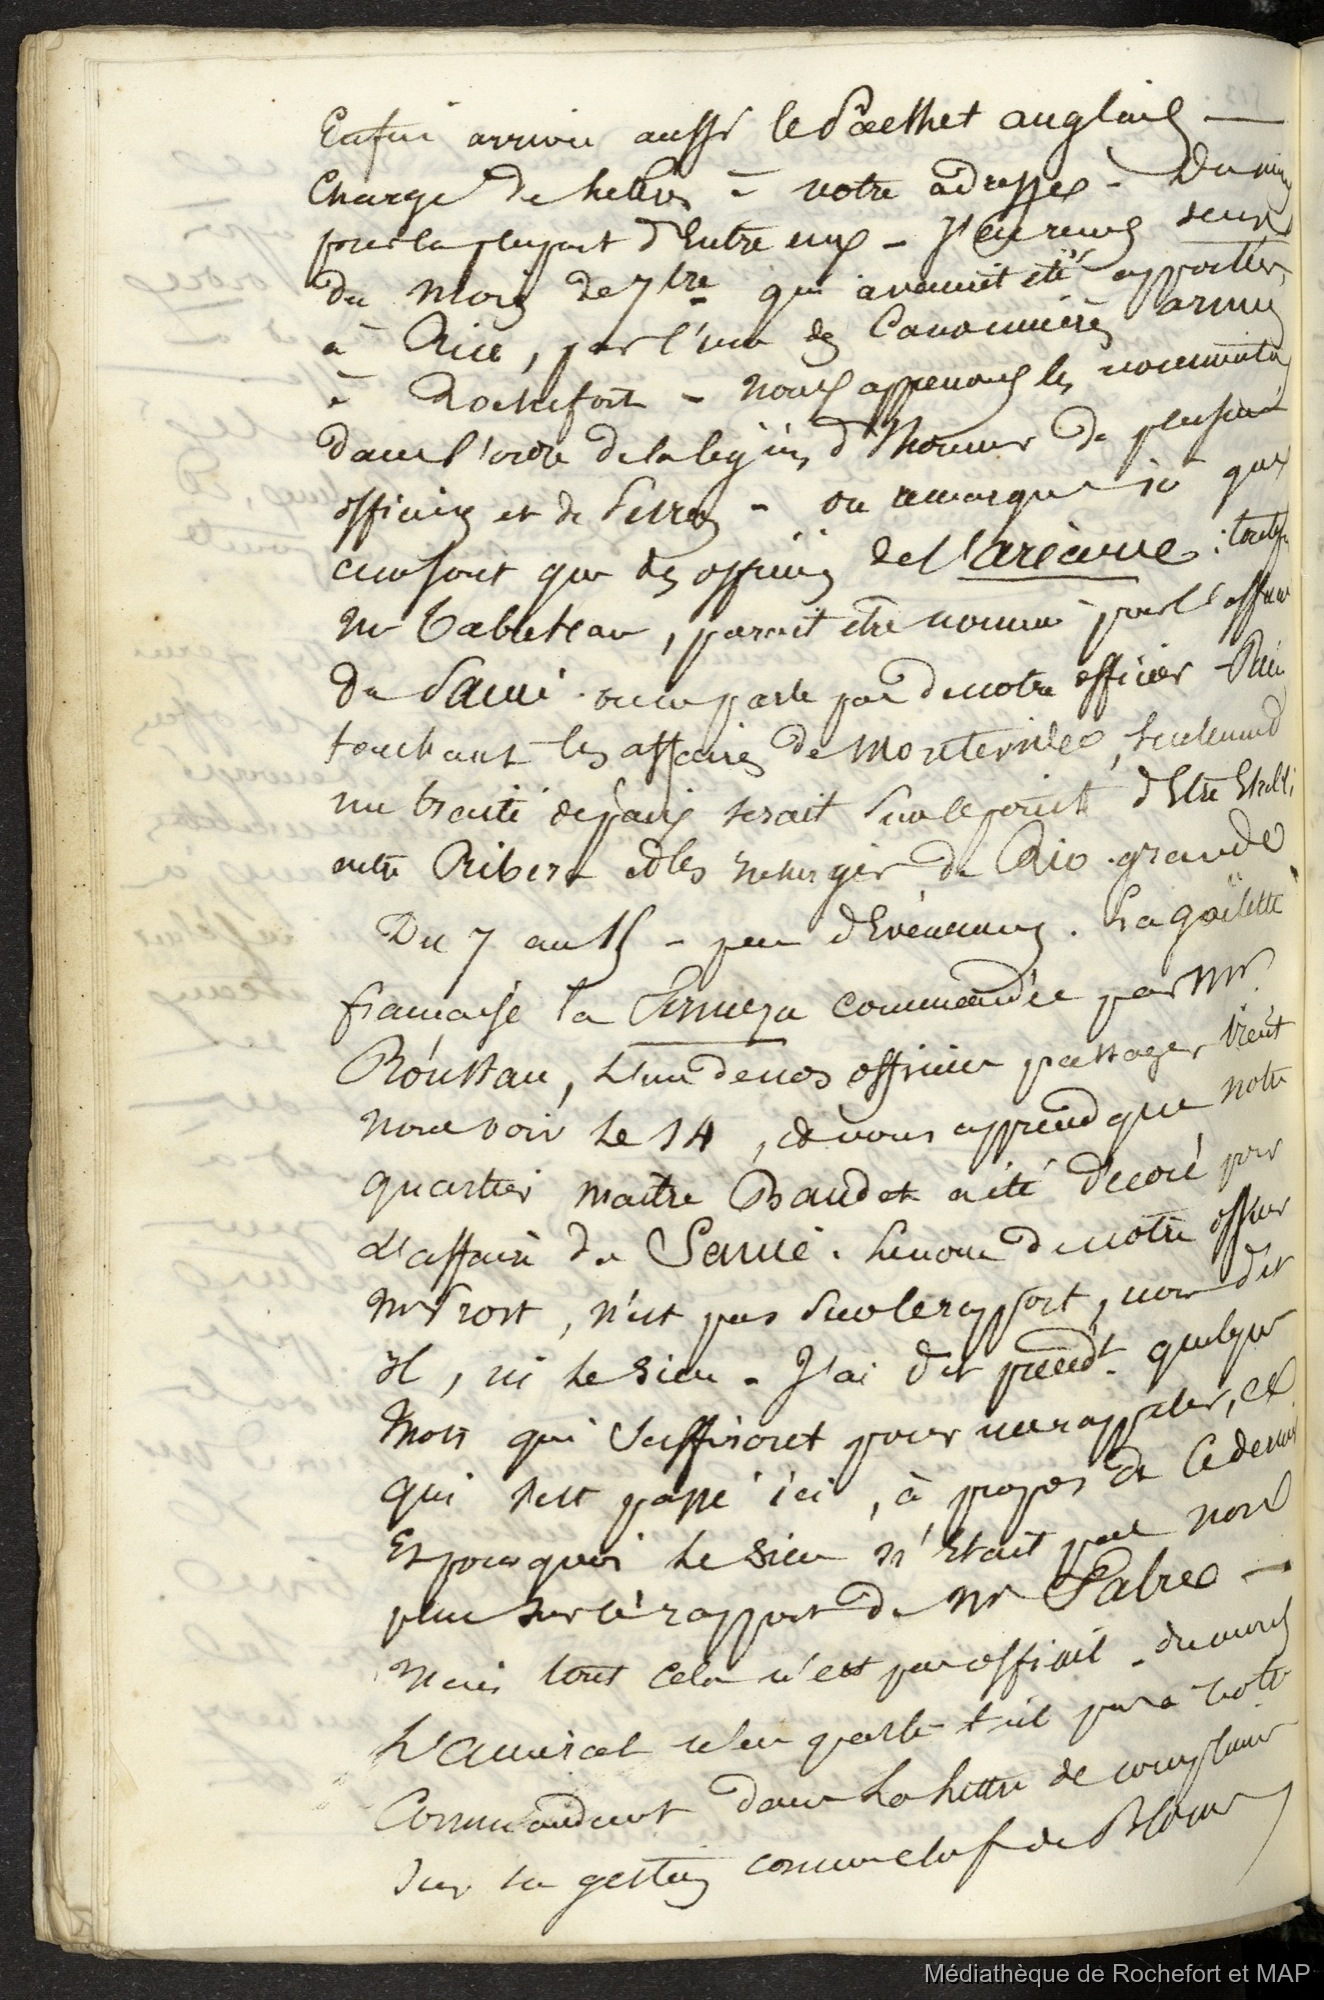 Enfin arrive aussi le Packet anglais —
Chargé de lettres à notre adresse -
pour la plupart d'Entre eux - J'en reçus deux
du mois de 7bre qui avaient été apportées
à Rio, par l'une des Canonnières armées
à Rochefort - nous apprenons les nominations
dans l'ordre de la légion d'honneur de plusieurs
officiers et de Serra - on remarque ici que
ce ne sont que des officiers de l'aréanne : toutefois
Mr Tabuteau, parait être nommé pour l'affaire
du Samé. on ne parle pas de notre officier - Rien
touchant les affaires de Montevideo, seulement
un traité de paix serait sur le point d'Etre Etabli
entre Ribera et les de Rio-grande
Du 7 au 15 - peu d'Evènements. La goëlette
française la commandée par Mr
Roustan, L'un de nos officiers passagers vient
nous voir le 14, et nous apprend que notre
quartier maître Baudet a été décoré pour
L'affaire du Samé. Le nom de notre officier
Mr Prost, n'est pas sur le rapport, nous dit
il, ni le sien - J'ai dit précédt quelques
mots qui suffiront pour me rappeler, ce
qui s'est passé ici, à propos de ce dernier
Et pourquoi le sien n'Etait pas non
plus sur le rapport de Mr Fabre —
Mais tout cela n'est pas officiel - du moins
L'amiral n'en parle-t-il pas à notre
Commandant dans la lettre de
sur sa gestion comme chef de